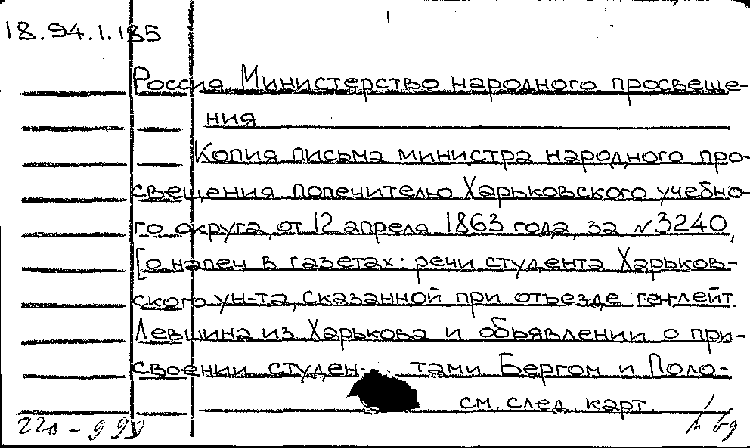 18.94.1.185
Россия Министерство народного просвеще-
ния
Копия письма министра народного про-
свещения попечителю Харьковского учебно-
го округа, от 12 апреля 1863 года, за №3240,
[о напеч в газетах: речи студента Харьков-
ского ун-та, сказанной при отъезде ген-лейт.
Левшина из Харькова и объявлении о при-
своении студен- тами Бергом и Поло-
см. след. карт.